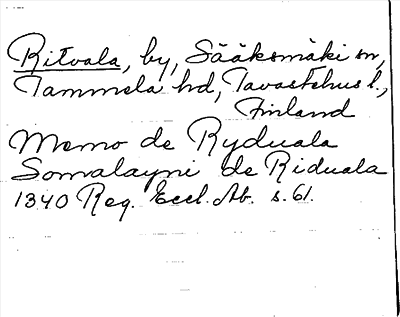 Ritvala, by, Sääksmäki sn,
Tammela hd, Tavastehus l.,
Finland
Memo de Ryduala
Somalayni de Riduala
1340 Reg. Eccl. Ab. s. 61.